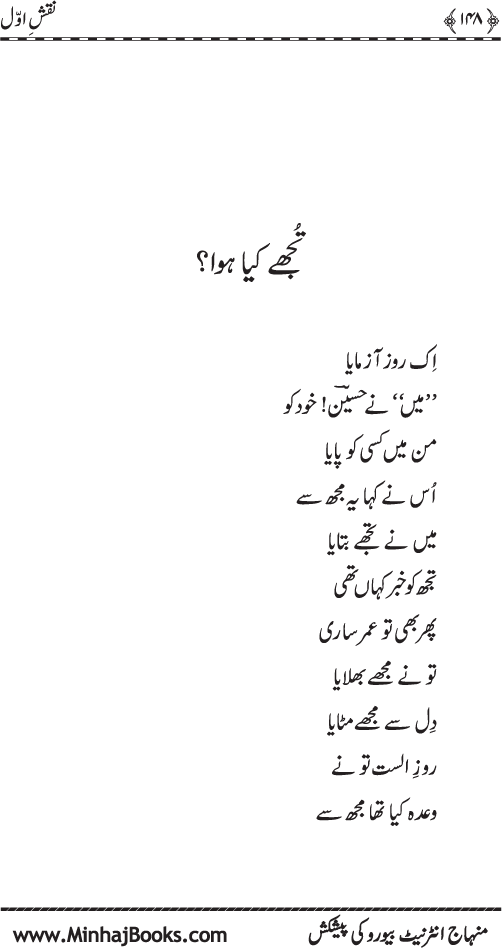 نقشِ اوّل
﴿۱۴۸﴾
تُجھے کیا ہوا؟
اِک روز آزمایا
’’میں‘‘ نے حسینؔ! خود کو
من میں کسی کو پایا
اُس نے کہا یہ مجھ سے
میں نے تجھے بتایا
تجھ کو خبر کہاں تھی
پھر بھی تو عمر ساری
تو نے مجھے بھلایا
دِل سے مجھے مٹایا
روزِ الست تو نے
وعدہ کیا تھا مجھ سے
منہاج انٹرنیٹ بیورو کی پیشکش
www.MinhajBooks.com